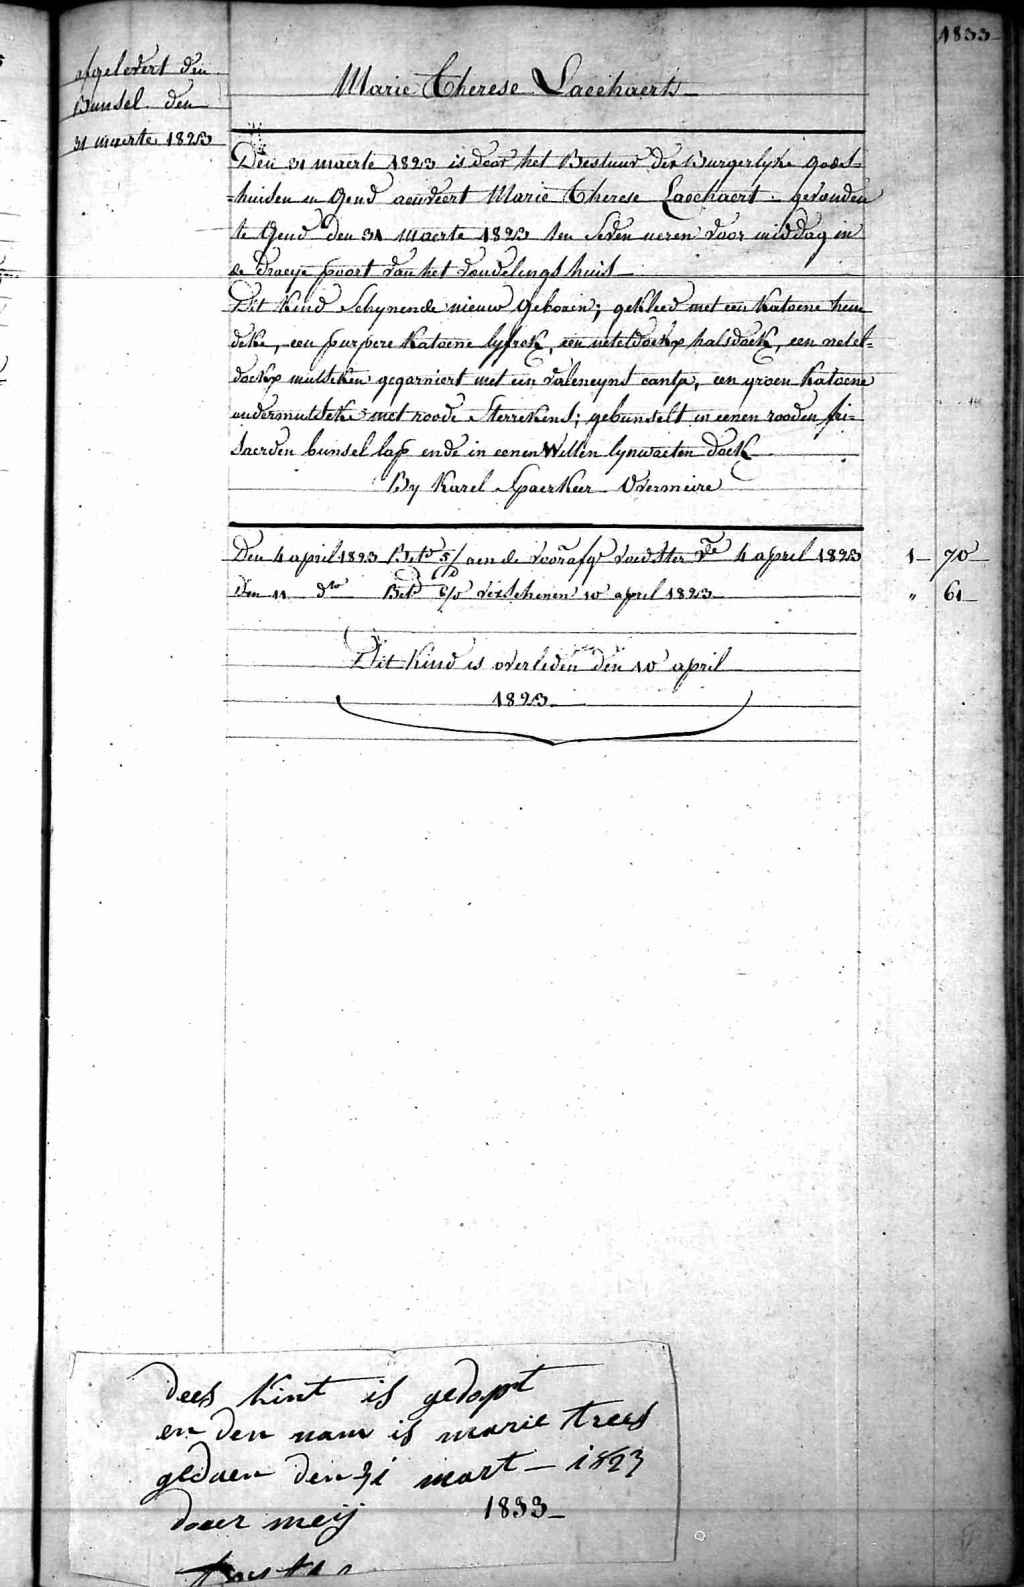 1833
afgelevert den
Bunsel den
31 maerte 1823
Marie Therese Laechaert
Den 31 maerte 1823 is door het Bestuur der Burgerlyke godts-
=huisen in Gend aenveert Marie Therese Laechaert gevonden
te Gend den 31 maerte 1823 ten seven ueren voor middag in
de draeye poort van het vondelings huis
Dit kind schynende nieuw geboren; gekleed met een katoene hem
deke, een purpere katoene lyfrok, een neteldoekx halsdoek, een netel=
doekx mutsken gegarniert met een valencyns canta, een groen katoene
ondermutsteke met roode sterrekens; gebunselt in eenen rooden fri=
saerden bunsel lap ende in eenen Witten lynwaeten doek
By Karel Spaerkeer Overmeire
Den 4 april 1823 Bet.d 5/ aen de voorafg.e voedster v.de 4 april 1823 1 70
Den 11 d.to Bet.d 6/0 verschenen 10 april 1823 " 61
Dit kind is overleden den 10 april
1823
dees kint is gedopt
en den nam is marie trees
gedaen den 31 mart 1823
door meij 1833